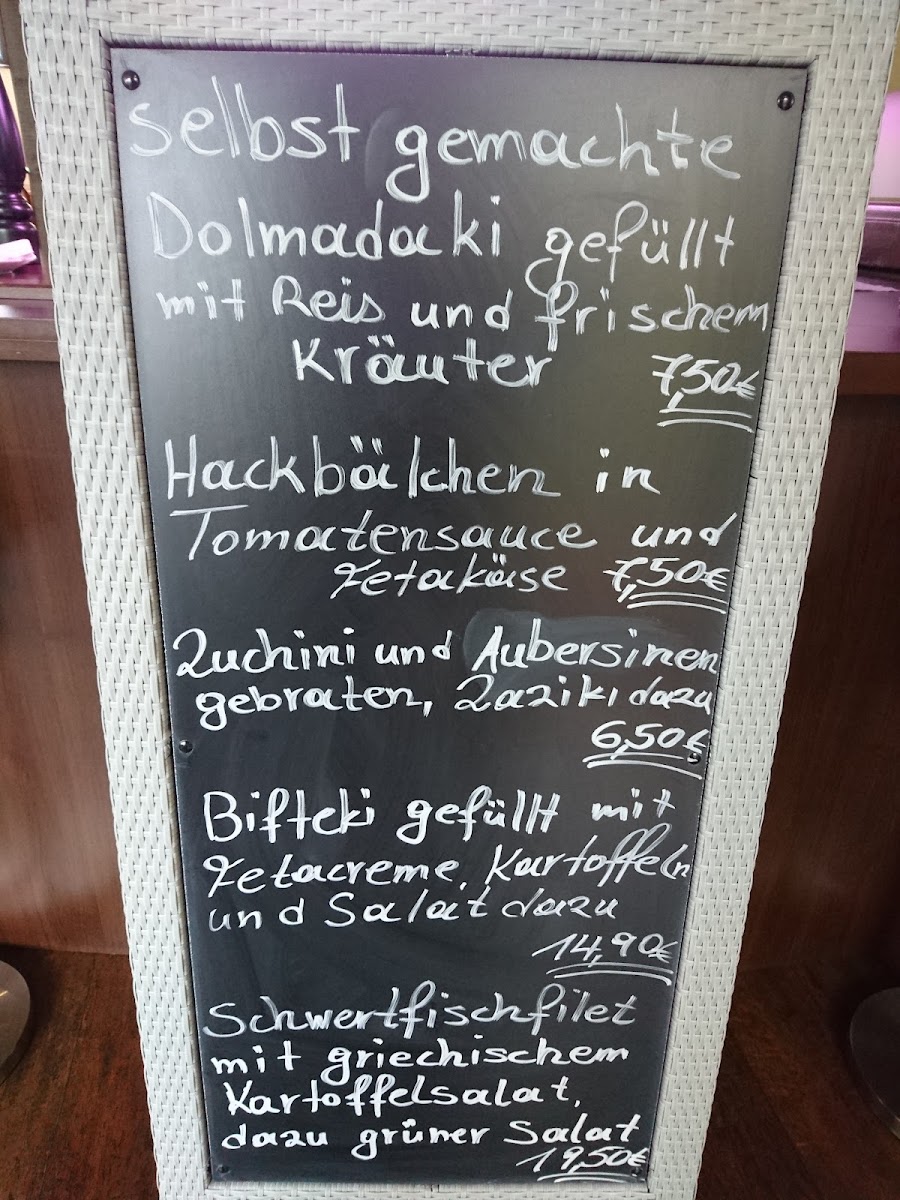 selbst gemachte
Dolmadaki gefüllt
mit Reis und frischem
Kräuter 7,50€
Hackbälchen in
Tomatensauce und
Fetakäse 7,50€
Zuchini und Aubersinen
gebraten, Zaziki dazu
6,50€
Bifteki gefüllt mit
Fetacreme, Kartoffeln
und Salat dazu
14,90€
Schwertfischfilet
mit griechischem
Kartoffelsalat,
dazu grüner Salat
19,50€